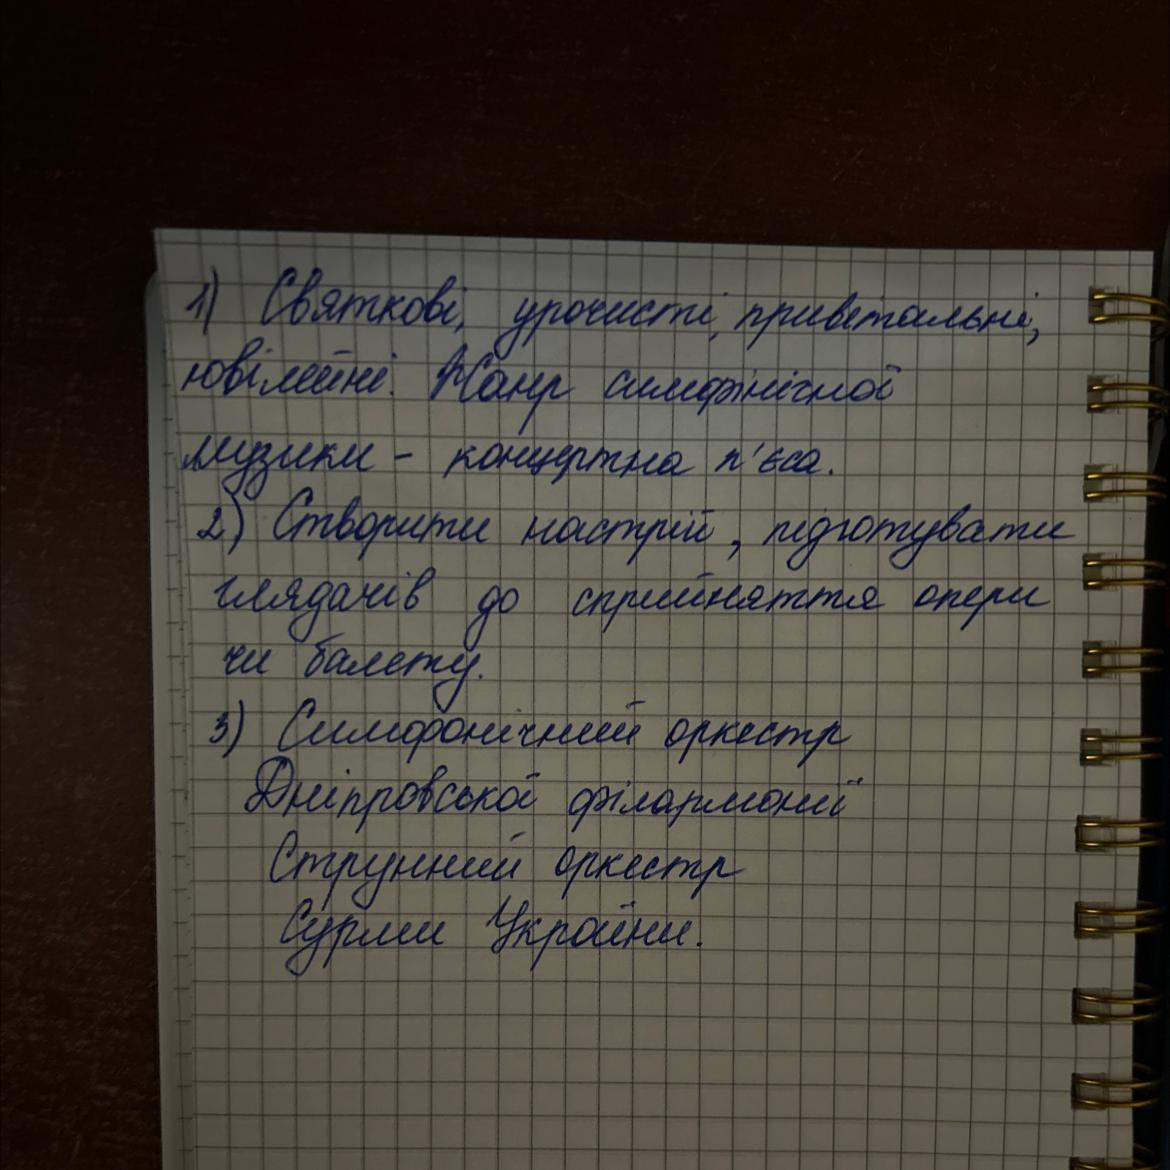 1) Святкові, урочисті, привітальні,
ювілейні. Жанр симфінічної
музики - концертна п'єса.
2) Створити настрій, підготувати
глядачів до сприйняття опери
чи балету.
3) Симфонічний оркестр
Дніпровської філармонії
Струнний оркестр
Сурми України.